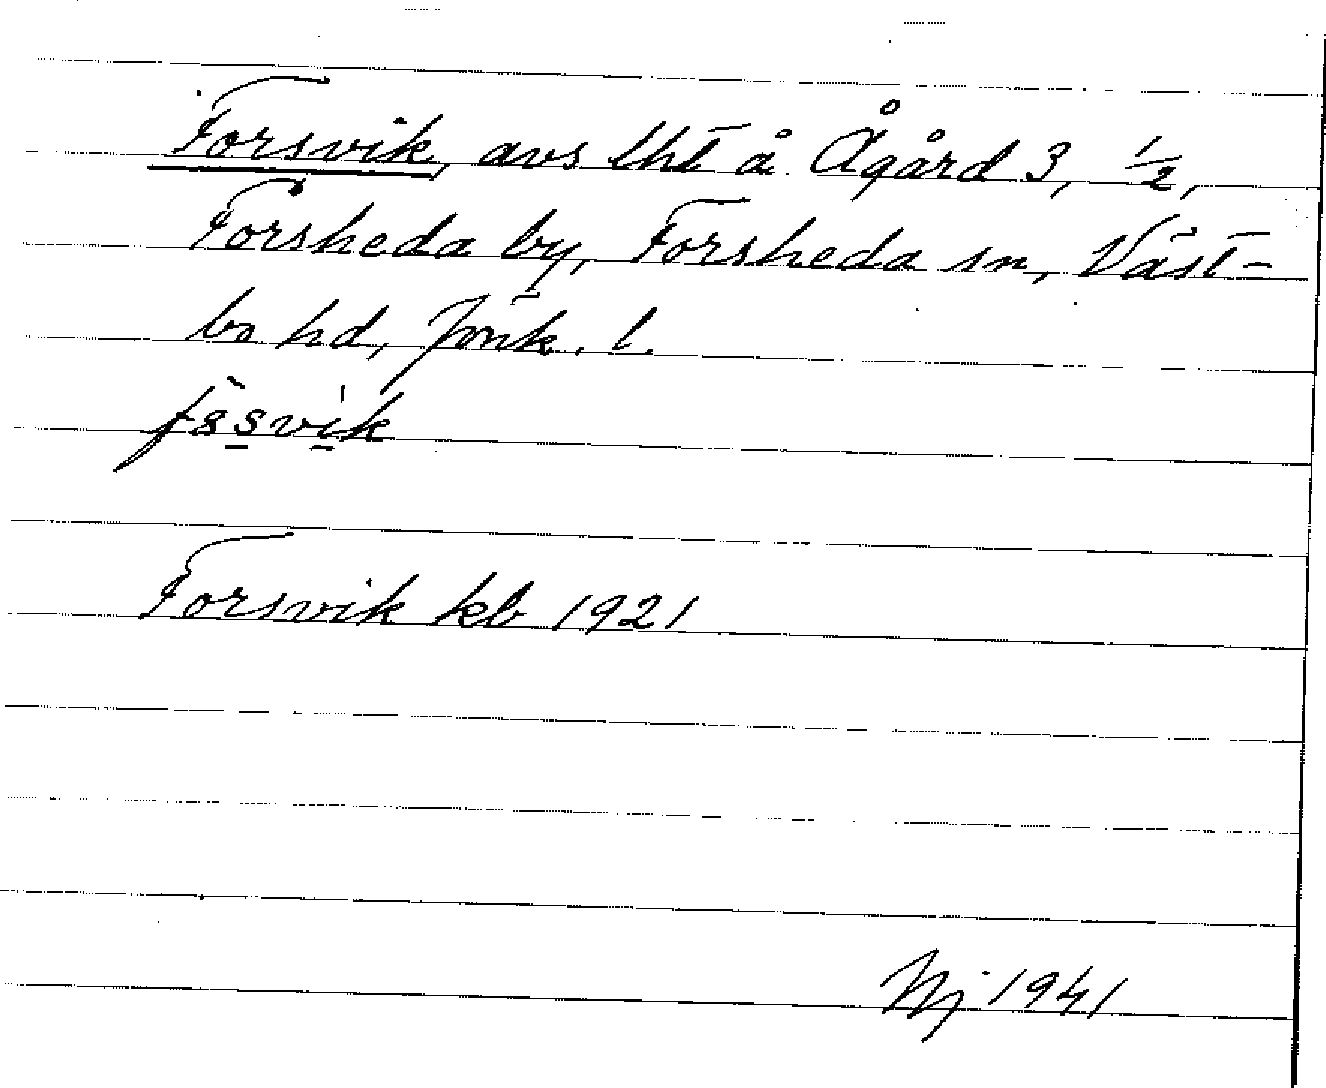 Forsvik, avs lht å Ågård 3, 1/2,
Forsheda by, Forsheda sn, Väst-
bo hd, Jönk. l.
Forsvik kb 1921
Nj 1941